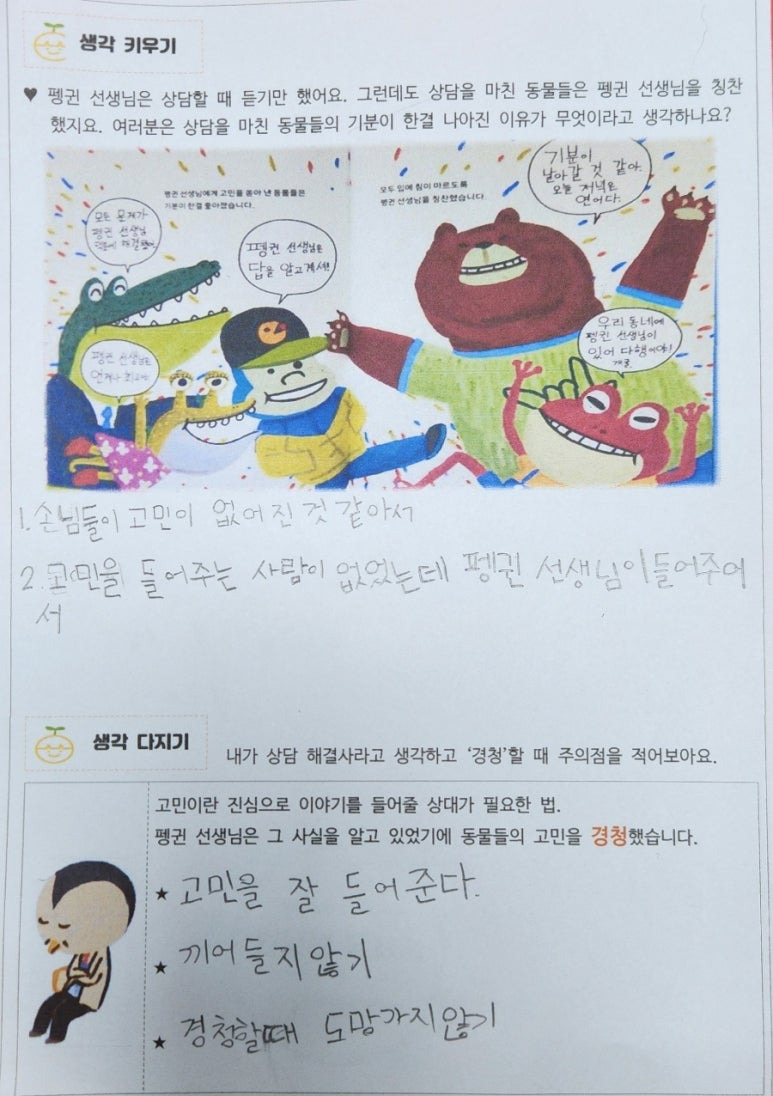 생각 키우기
♥ 펭귄 선생님은 상담할 때 듣기만 했어요. 그런데도 상담을 마친 동물들은 펭귄 선생님을 칭찬
했지요. 여러분은 상담을 마친 동물들의 기분이 한결 나아진 이유가 무엇이라고 생각하나요?
펭귄 선생님에게 고민을 쏟아 낸 동물들은
기분이 한결 좋아졌습니다.
모두 입에 침이 마르도록
펭귄 선생님을 칭찬했습니다.
모든 문제가
펭귄 선생님
덕분에 해결됐어.
펭귄 선생님은
답을 알고계셔!
펭귄 선생님은
언제나 최고야!
기분이
날아갈 것 같아.
오늘 저녁은
연어다.
우리 동네에
펭귄 선생님이
있어 다행이야!
개굴
1. 손님들이 고민이 없어진 것 같아서
2. 고민을 들어주는 사람이 없었는데 펭귄 선생님이 들어주어
서
생각 다지기
내가 상담 해결사라고 생각하고 '경청'할 때 주의점을 적어보아요.
고민이란 진심으로 이야기를 들어줄 상대가 필요한 법.
펭귄 선생님은 그 사실을 알고 있었기에 동물들의 고민을 경청했습니다.
★ 고민을 잘 들어준다.
★ 끼어들지않기
★ 경청할때 도망가지않기